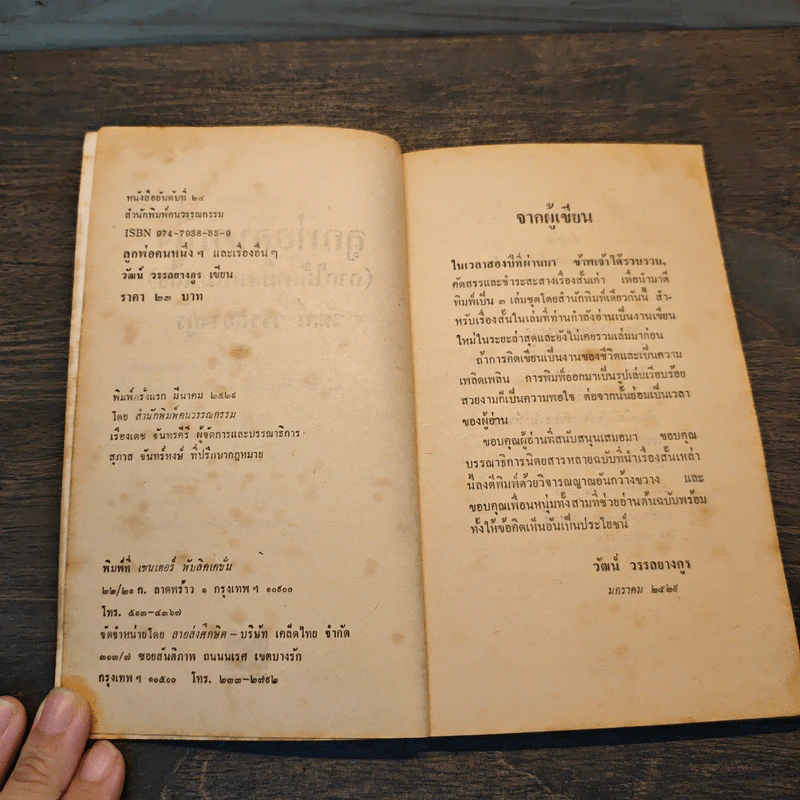 หนังสืออันดับที่ ๒๘
สำนักพิมพ์คนวรรณกรรม
ISBN 974-7938-85-9
ลูกพ่อคนหนึ่ง ๆ และเรื่องอื่น ๆ
วัฒน์ วรรลยางกูร เขียน
ราคา ๒๓ บาท
พิมพ์ครั้งแรก มีนาคม ๒๕๒๙
โดย สำนักพิมพ์คนวรรณกรรม
เรืองเดช จันทรคีรี ผู้จัดการและบรรณาธิการ
สุภาส จันทร์หงษ์ ที่ปรึกษากฎหมาย
พิมพ์ที่ เซนเตอร์ พับลิคเคชั่น
๒๒/๒๑ ก. ลาดพร้าว ๑ กรุงเทพ ฯ ๑๐๙๐๐
โทร. ๕๑๓-๔๓๖๗
จัดจำหน่ายโดย สายส่งศึกษิต – บริษัท เคล็ดไทย จำกัด
๓๐๓/๗ ซอยสันติภาพ ถนนนเรศ เขตบางรัก
กรุงเทพ ฯ ๑๐๕๐๐ โทร. ๒๓๓-๒๗๙๒
จากผู้เขียน
ในเวลาสองปีที่ผ่านมา ข้าพเจ้าได้รวบรวม,
คัดสรรและชำระสะสางเรื่องสั้นเก่า เพื่อนำมาตี
พิมพ์เป็น ๓ เล่มชุดโดยสำนักพิมพ์เดียวกันนี้ สำ-
หรับเรื่องสั้นในเล่มที่ท่านกำลังอ่านเป็นงานเขียน
ใหม่ในระยะล่าสุดและยังไม่เคยรวมเล่มมาก่อน
ถ้าการคิดเขียนเป็นงานของชีวิตและเป็นความ
เพลิดเพลิน การพิมพ์ออกมาเป็นรูปเล่มเรียบร้อย
สวยงามก็เป็นความพอใจ ต่อจากนั้นย่อมเป็นเวลา
ของผู้อ่าน
ขอบคุณผู้อ่านที่สนับสนุนเสมอมา ขอบคุณ
บรรณาธิการนิตยสารหลายฉบับที่นำเรื่องสั้นเหล่า
นี้ลงตีพิมพ์ด้วยวิจารณญาณอันกว้างขวาง และ
ขอบคุณเพื่อนหนุ่มทั้งสามที่ช่วยอ่านต้นฉบับพร้อม
ทั้งให้ข้อคิดเห็นอันเป็นประโยชน์
วัฒน์ วรรลยางกูร
มกราคม ๒๕๒๙